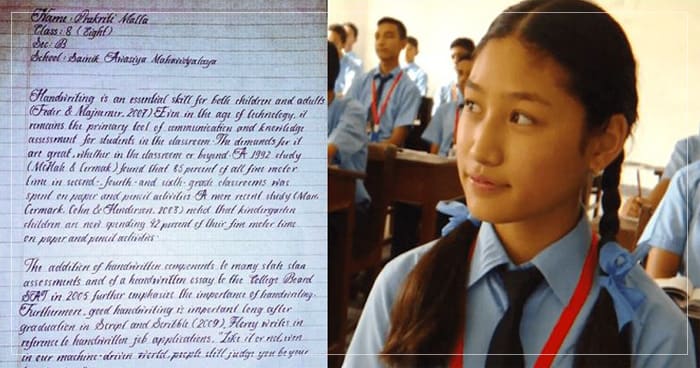 Name : Prakriti Malla
Class : 8 (Eight)
Sec : B
School : Sainik Awasiya Mahavidyalaya
Handwriting is an essential skill for both children and adults
(Feder & Majnemer, 2007) Even in the age of technology, it
remains the primary tool of communication and knowledge
assessment for students in the classroom. The demands for it
are great, whether in the classroom or beyond. A 1992 study
(McHale & Cermak) found that 85 percent of all fine motor
time in second-, fourth- and sixth-grade classrooms was
spent on paper and pencil activities. A more recent study (Marr,
Cermark, Cohn & Henderson, 2003) noted that kindergarten
children are now spending 42 percent of their fine motor time
on paper and pencil activities.
The addition of handwritten components to many state
assessments and of a handwritten essay to the College Board
SAT in 2005 further emphasis the importance of handwriting.
Furthermore, good handwriting is important long after
graduation in Script and Scribble (2009), Florey writes in
reference to handwritten job applications, "Like it or not, even
in our machine-driven world, people still judge you by your